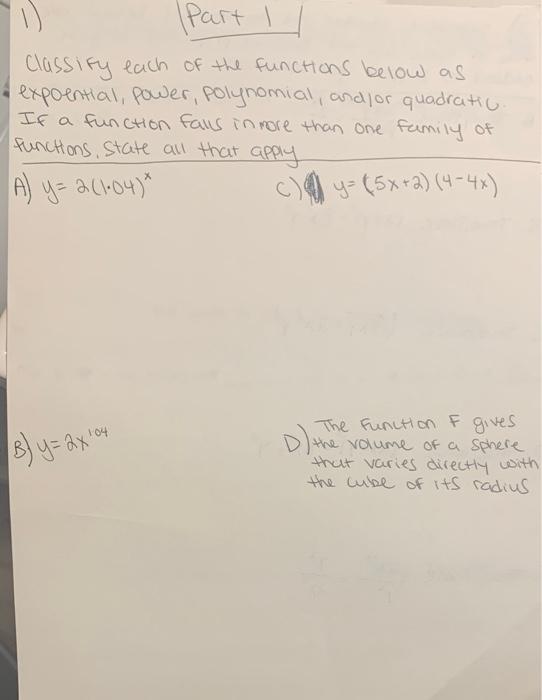 1) Part 1
Classify each of the functions below as
expoential, power, polynomial, and/or quadratic.
If a function falls in more than one family of
functions, state all that apply
A) y= 2(1.04)^x
C) y= (5x+2)(4-4x)
B) y= 2x^1.04
D) The function F gives
the volume of a sphere
that varies directly with
the cube of its radius